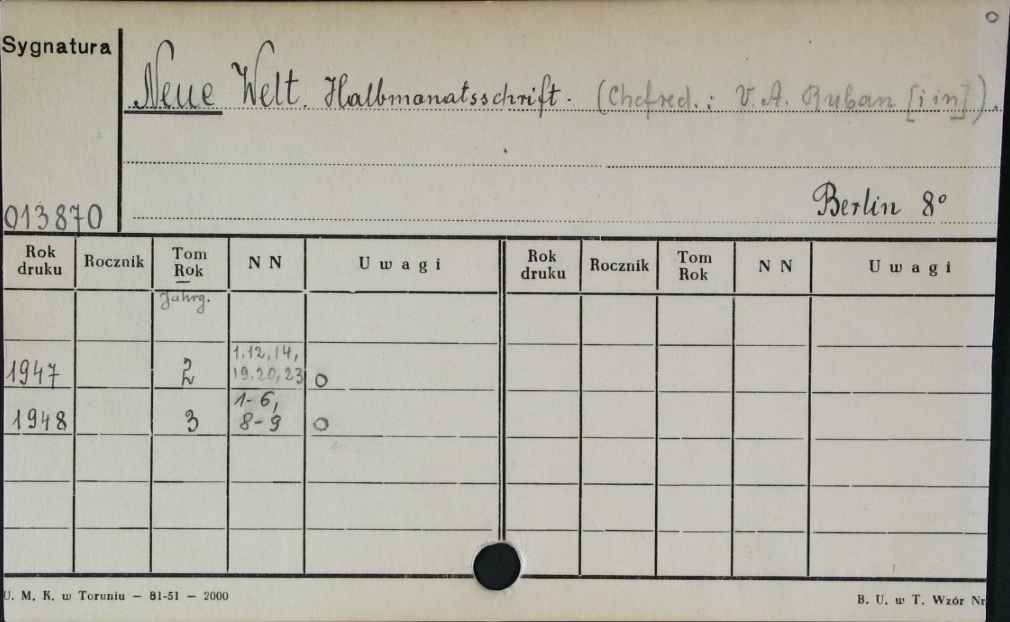 Sygnatura
Neue Welt. Halbmonatsschrift. (Chefred.: V. A. Ruban [i in]).
013870
Berlin 8°
Rok druku Rocznik Tom Rok N N Uwagi Rok druku Rocznik Tom Rok N N Uwagi
Jahrg.
1947 2 1.12,14, 19.20,23 o
1948 3 1-6, 8-9 o
U. M. K. w Toruniu — 81-51 — 2000
B. U. w T. Wzór Nr